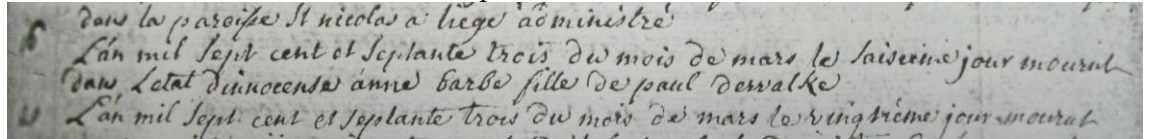 dans la paroisse St nicolas a liege administré
L'an mil sept cent et septante trois du mois de mars le saisieme jour mourut
dans Letat dinnocense anne barbe fille de paul dewalke
L'an mil sept cent et septante trois du mois de mars le vingtieme jour mourut